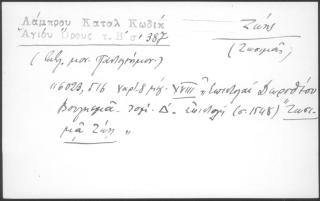 Λάμπρου Καταλ Κωδίκ
Ἁγίου Ὄρους τ. Β΄ σ΄ 387
Ζώης
(Ζωσιμᾶς)
μον. Παντελεήμον.)
"6023, 516 χαρτ. 8 XVIII " Ἐπιστολαὶ Δωροθέου
Βουλησμᾶ Δ. ἐπιστολὴ (σ. 1548) Ζωσι-
μᾷ Ζώῃ "